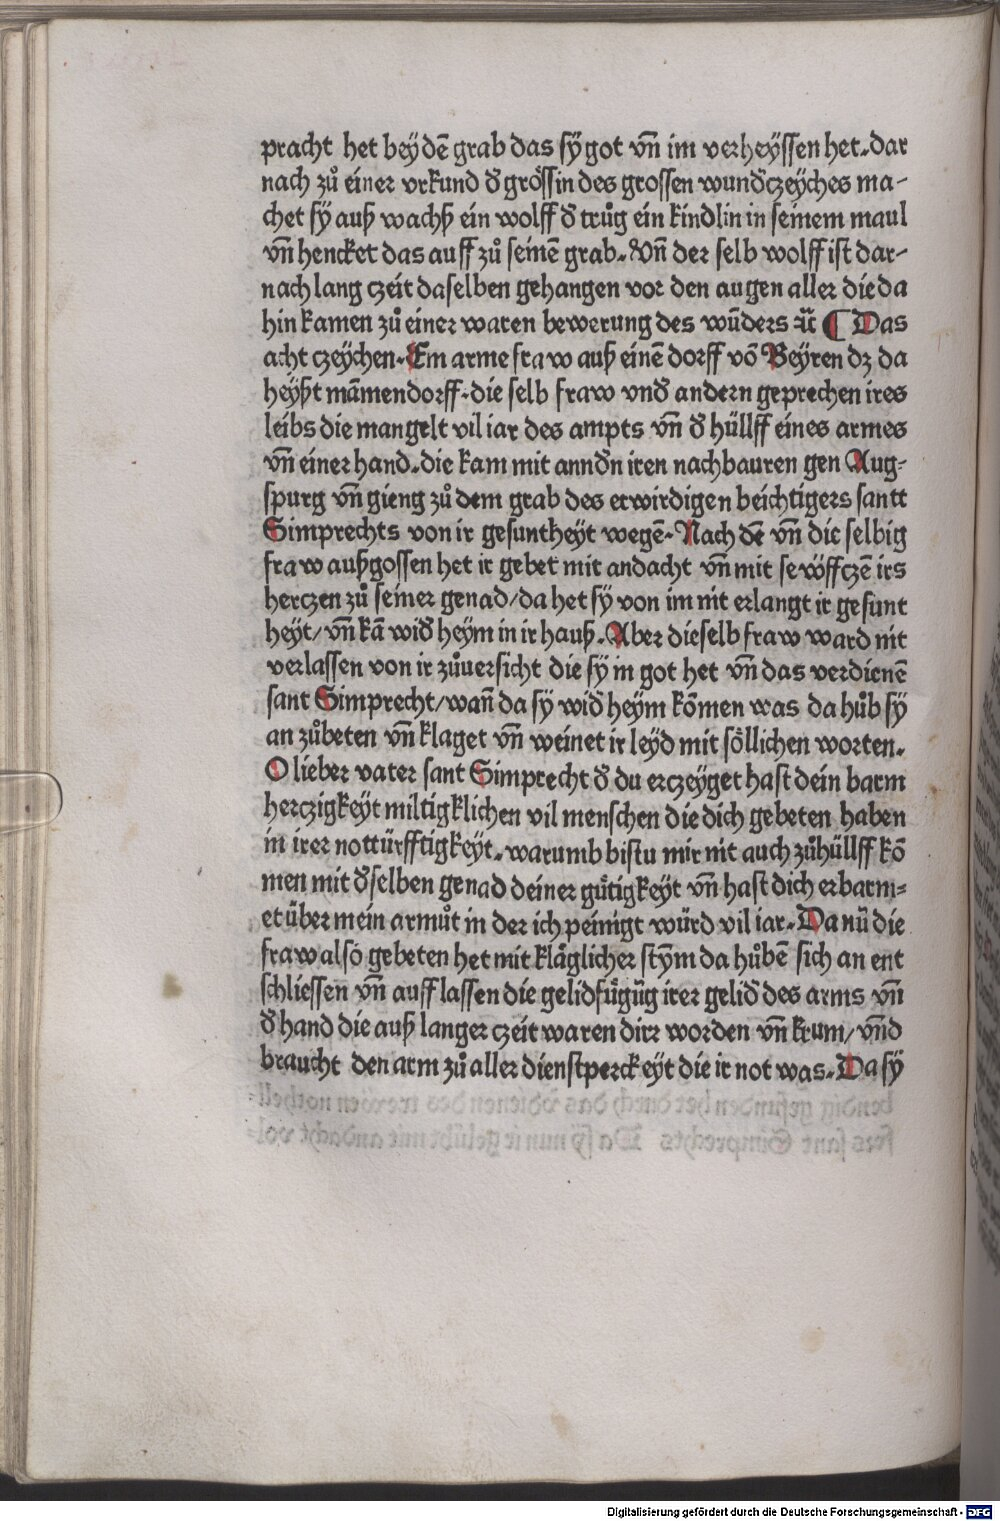 pracht het beÿ dē grab das sÿ got vn̄ im verheÿssen het. dar
nach zů einer vrkund đ grössin des grossen wundčzeÿches ma-
chet sÿ auß wachß ein wolff đ trůg ein kindlin in seinem maul
vn̄ hencket das auff zů seinē grab. Vn̄ der selb wolff ist dar-
nach lang czeit daselben gehangen vor den augen aller die da
hin kamen zů einer waren bewerung des wūders ꝛc̄ ¶ Das
acht czeÿchen. Ein arme fraw auß einē dorff vō Beÿren dz da
heÿßt māmendorff. die selb fraw vnđ andern geprechen ires
leibs die mangelt vil iar des ampts vn̄ đ hüllff eines armes
vn̄ einer hand. die kam mit anndn̄ iren nachbauren gen Aug-
spurg vn̄ gieng zů dem grab des erwirdigen beichtigers santt
Simprechts von ir gesuntheÿt wegē. Nach dē vn̄ die selbig
fraw außgossen het ir gebet mit andacht vn̄ mit sewffczē irs
herczen zů seiner genad/ da het sÿ von im nit erlangt ir gesunt
heÿt/ vn̄ kā wiđ heÿm in ir hauß. Aber die selb fraw ward nit
verlassen von ir zůuersicht die sÿ in got het vn̄ das verdienē
sant Simprecht/ wan̄ da sÿ wiđ heÿm kōmen was da hůb sÿ
an zůbeten vn̄ klaget vn̄ weinet ir leÿd mit söllichen worten.
O lieber vater sant Simprecht đ du erczeÿget hast dein barm
herczigkeÿt miltigklichen vil menschen die dich gebeten haben
in irer nottürfftigkeÿt. warumb bistu mir nit auch zůhüllff kō
men mit đselben genad deiner gůtigkeÿt vn̄ hast dich erbarm-
et über mein armůt in der ich peinigt würd vil iar. Da nū die
fraw also gebeten het mit kläglicher stȳm da hůbē sich an ent
schliessen vn̄ auff lassen die gelidfůgūg irer geliđ des arms vn̄
đ hand die auß langer czeit waren dirr worden vn̄ krum/ vn̄d
braucht den arm zů aller dienstperckeÿt die ir not was. Da sÿ
Digitalisierung gefördert durch die Deutsche Forschungsgemeinschaft - DFG